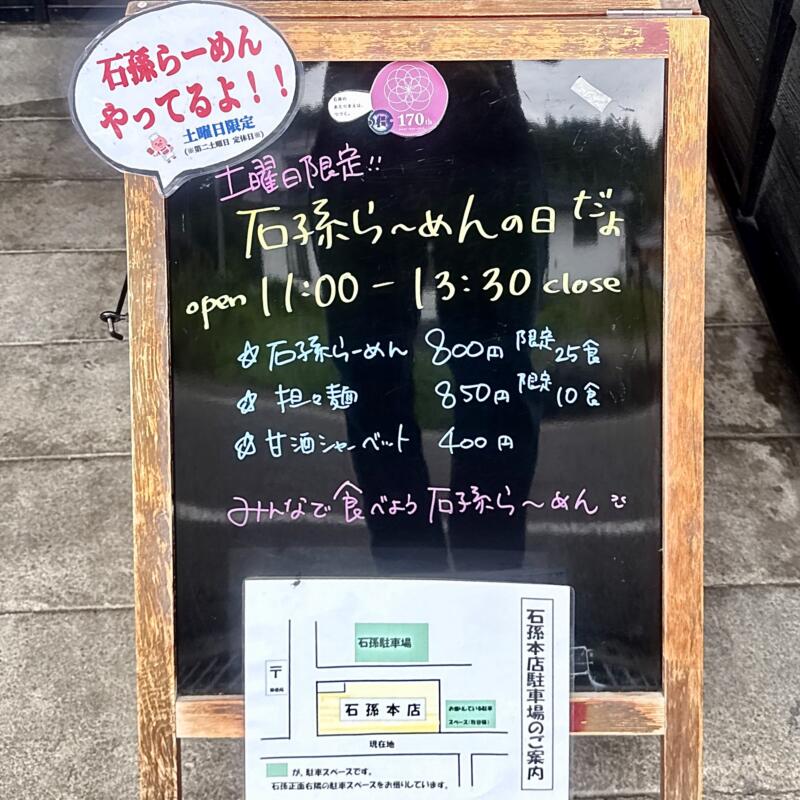 石孫らーめん
やってるよ！！
土曜日限定
(※第二土曜日 定休日※)
170th
土曜日限定!!
石孫ら〜めんの日 だよ
open 11:00 - 13:30 close
☆ 石孫らーめん 800円 限定25食
☆ 担々麺 850円 限定10食
☆ 甘酒シャーベット 400円
みんなで食べよう 石孫ら〜めん
石孫本店駐車場のご案内
石孫駐車場
〒
郵便局
石孫本店
お借りしている駐車
現在地
が、駐車スペースです。
石孫正面右隣の駐車スペースをお借りしています。